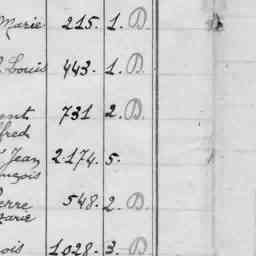 Marie 215. 1. D.
Louis 443. 1. D.
731 2. D.
fred
Jean 2.174. 5.
nçois
548. 2. D.
arie
ois 1.028. 3. D